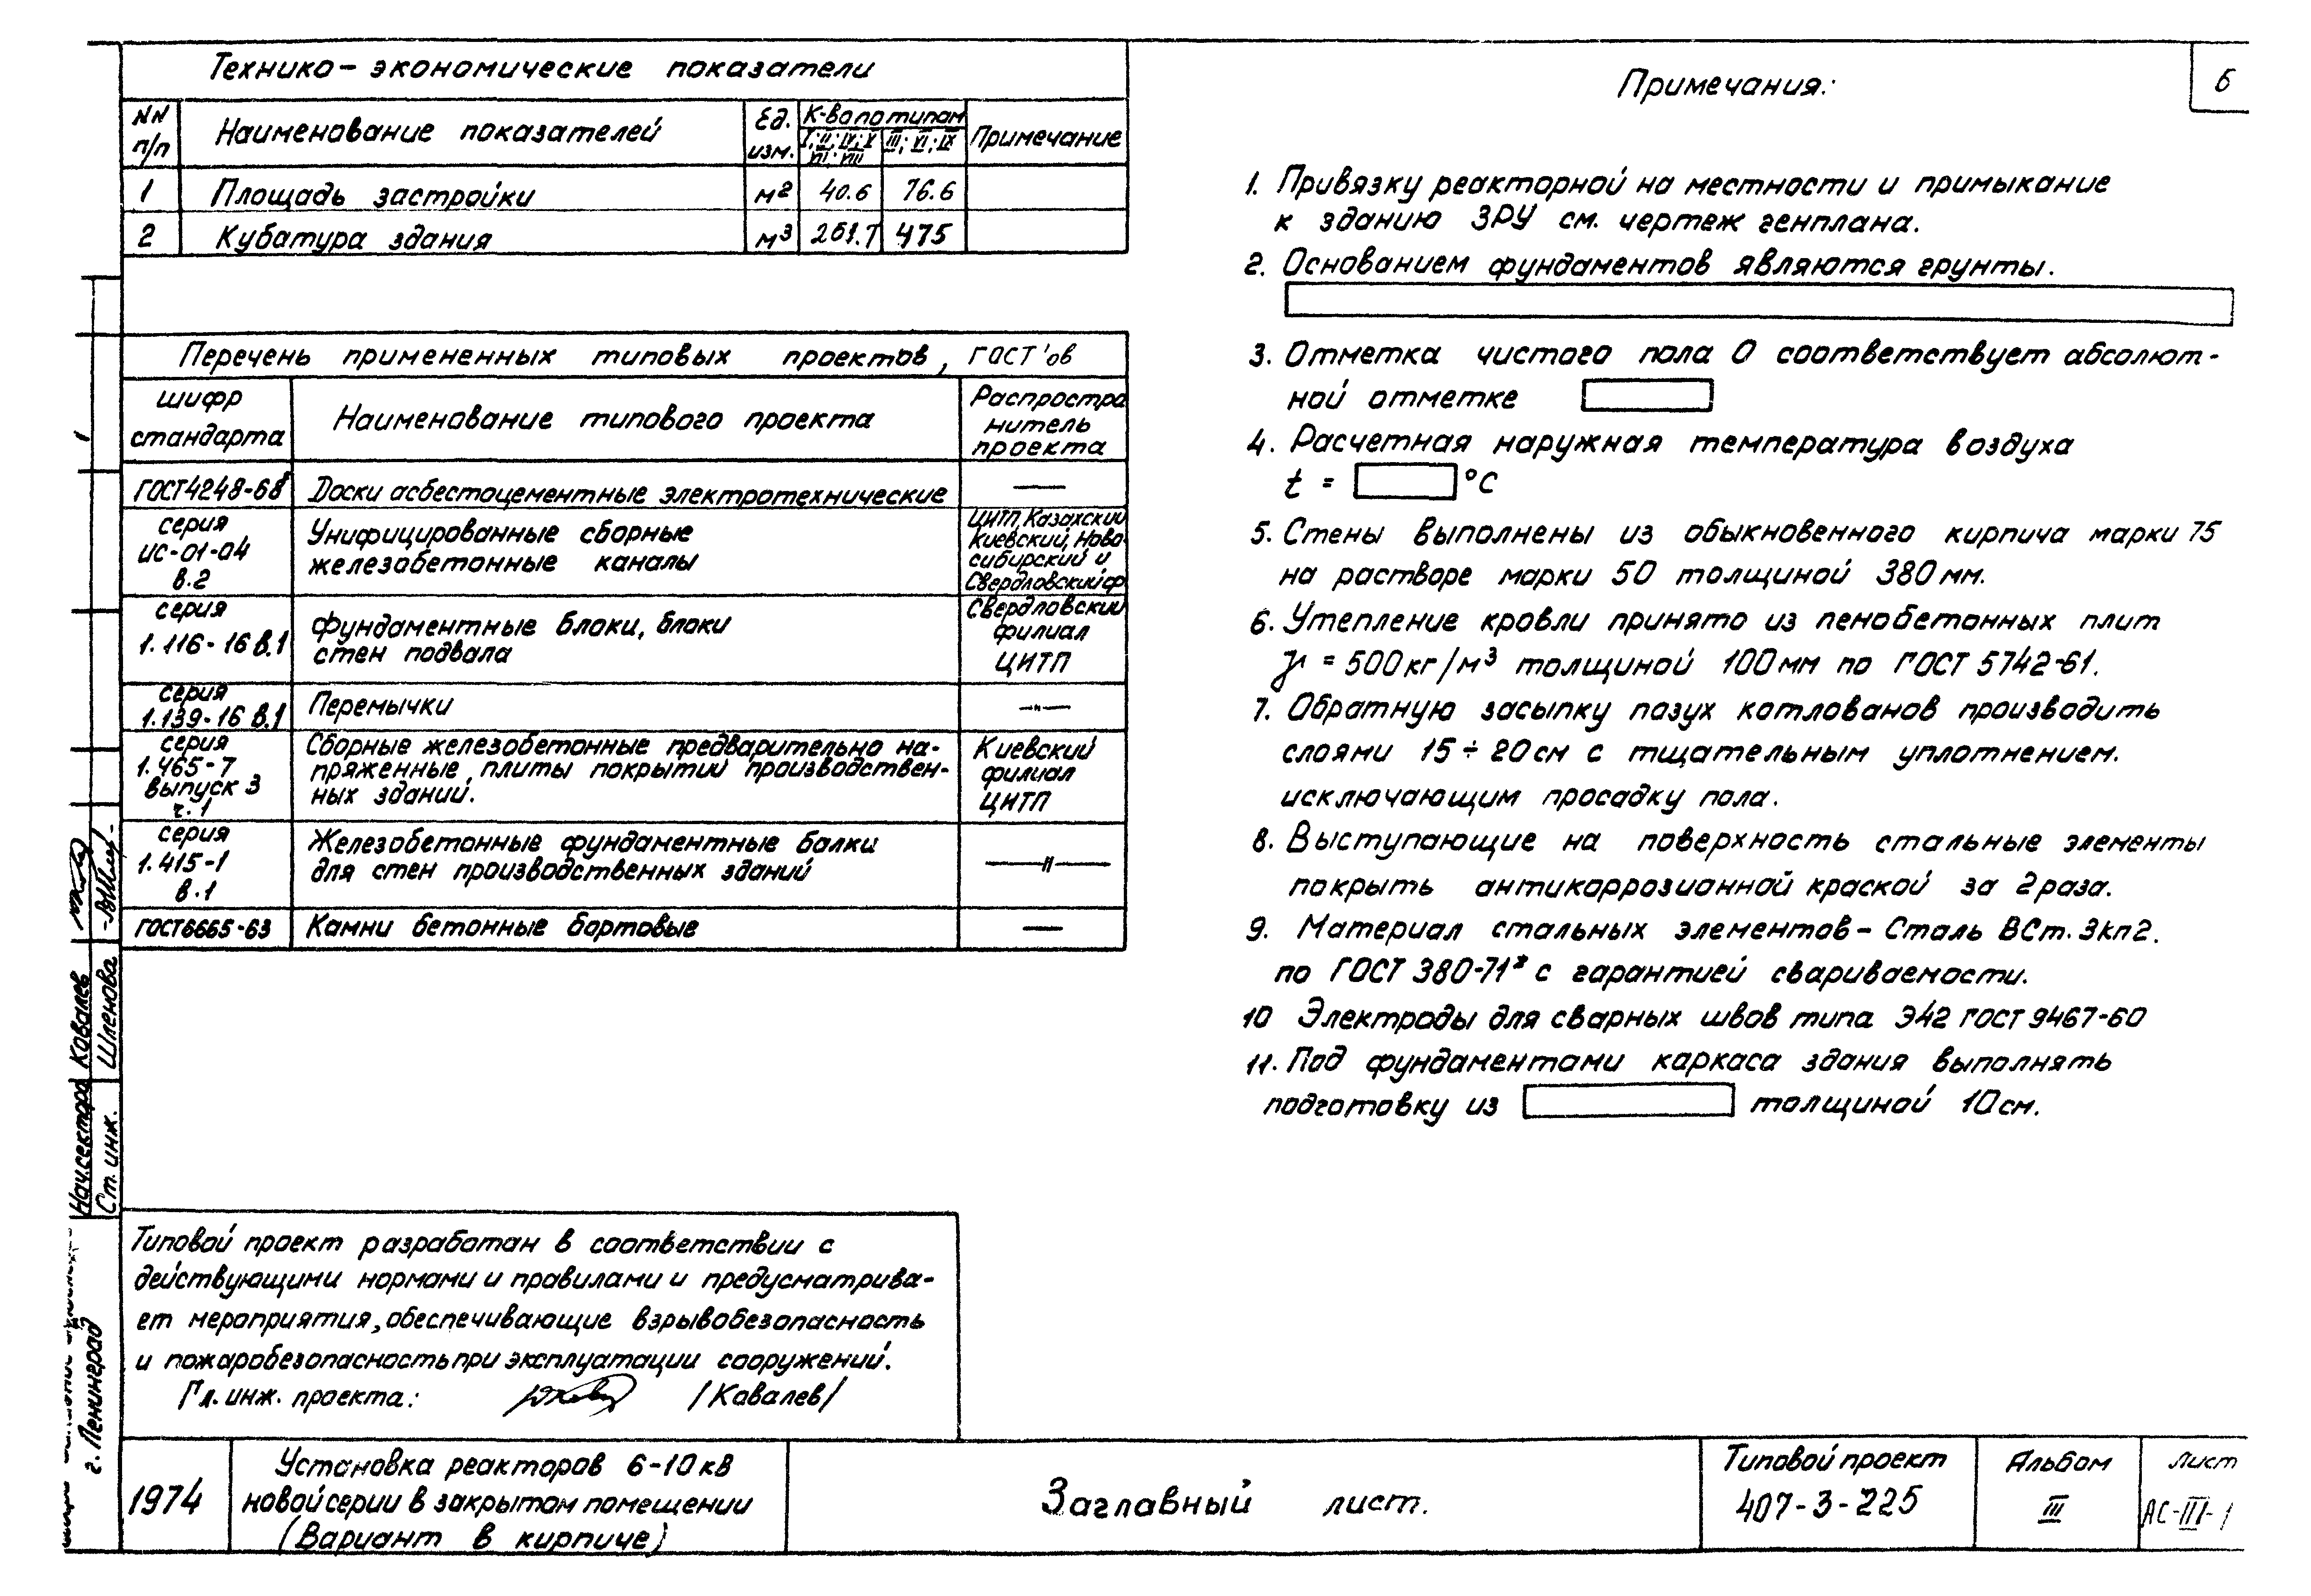 Технико-экономические показатели
NN п/п
Наименование показателей
Ед. изм.
К-во по типам
I; II; IV; V VII; VIII
III; VI; IX
Примечание
1 Площадь застройки м² 40.6 76.6
2 Кубатура здания м³ 261.7 475
Перечень примененных типовых проектов, ГОСТ'ов
шифр стандарта
Наименование типового проекта
Распростра
нитель
проекта
ГОСТ4248-68 Доски асбестоцементные электротехнические —
серия
ИС-01-04
в.2
Унифицированные сборные
железобетонные каналы
ЦИТП, Казахский
Киевский, Ново-
сибирский и
Свердловский ф.
серия
1.116-16 в.1
Фундаментные блоки, блоки
стен подвала
Свердловский
филиал
ЦИТП
серия
1.139-16 в.1
Перемычки
—"—
серия
1.465-7
выпуск 3
ч.1
Сборные железобетонные предварительно на-
пряженные, плиты покрытий производствен-
ных зданий.
Киевский
филиал
ЦИТП
серия
1.415-1
в.1
Железобетонные фундаментные балки
для стен производственных зданий
—"—
ГОСТ6665-63 Камни бетонные бортовые —
Типовой проект разработан в соответствии с
действующими нормами и правилами и предусматрива-
ет мероприятия, обеспечивающие взрывобезопасность
и пожаробезопасность при эксплуатации сооружений.
Гл. инж. проекта: /Ковалев/
6
Примечания:
1. Привязку реакторной на местности и примыкание
к зданию ЗРУ см. чертеж генплана.
2. Основанием фундаментов являются грунты.
3. Отметка чистого пола 0 соответствует абсолют-
ной отметке
4. Расчетная наружная температура воздуха
t = °С
5. Стены выполнены из обыкновенного кирпича марки 75
на растворе марки 50 толщиной 380 мм.
6. Утепление кровли принято из пенобетонных плит
γ = 500 кг/м³ толщиной 100 мм по ГОСТ 5742-61.
7. Обратную засыпку пазух котлованов производить
слоями 15÷20 см с тщательным уплотнением.
исключающим просадку пола.
8. Выступающие на поверхность стальные элементы
покрыть антикоррозионной краской за 2 раза.
9. Материал стальных элементов - Сталь ВСт. 3кп2.
по ГОСТ 380-71* с гарантией свариваемости.
10 Электроды для сварных швов типа Э42 ГОСТ 9467-60
11. Под фундаментами каркаса здания выполнять
подготовку из толщиной 10 см.
Нач. сектора Ковалев
Ст. инж. Шленова
г. Ленинград
1974
Установка реакторов 6-10 кв
новой серии в закрытом помещении
(Вариант в кирпиче)
Заглавный лист.
Типовой проект
407-3-225
Альбом
III
Лист
АС-III-1